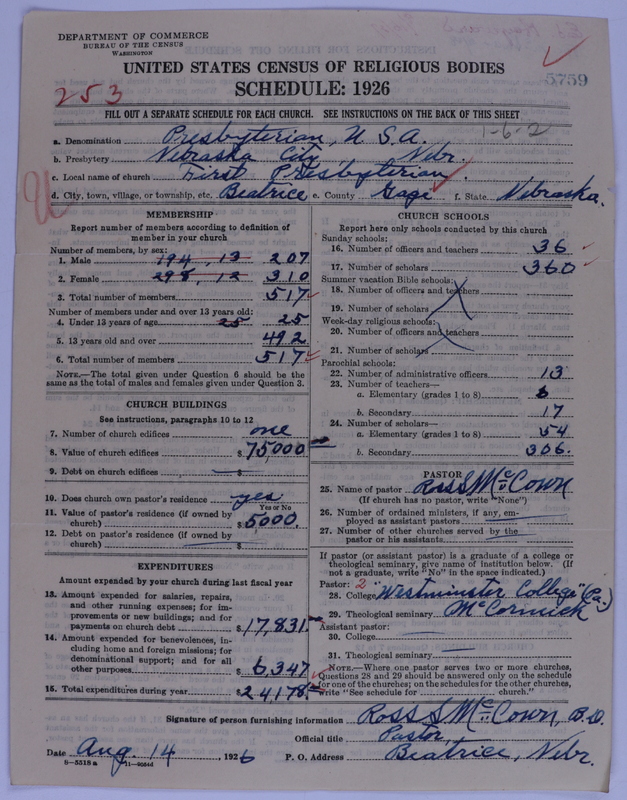 DEPARTMENT OF COMMERCE
BUREAU OF THE CENSUS
WASHINGTON
UNITED STATES CENSUS OF RELIGIOUS BODIES
5759
253
SCHEDULE: 1926
FILL OUT A SEPARATE SCHEDULE FOR EACH CHURCH. SEE INSTRUCTIONS ON THE BACK OF THIS SHEET
1-6-2
a. Denomination Presbyterian, U.S.A.
b. Presbytery Nebraska City Nebr.
c. Local name of church First Presbyterian
d. City, town, village, or township, etc. Beatrice e. County Gage f. State Nebraska.
MEMBERSHIP
Report number of members according to definition of
member in your church
Number of members, by sex:
1. Male 194, 13 207
2. Female 298, 12 310
3. Total number of members 517
Number of members under and over 13 years old:
4. Under 13 years of age 25 25
5. 13 years old and over 492
6. Total number of members 517
NOTE.—The total given under Question 6 should be
same as the total of males and females given under Question 3.
CHURCH BUILDINGS
See instructions, paragraphs 10 to 12
7. Number of church edifices one
8. Value of church edifices $75,000
9. Debt on church edifices $ —
10. Does church own pastor's residence yes
Yes or No
11. Value of pastor's residence (if owned by
church) $5000
12. Debt on pastor's residence (if owned by
church) $
EXPENDITURES
Amount expended by your church during last fiscal year
13. Amount expended for salaries, repairs,
and other running expenses; for im-
provements or new buildings; and for
payments on church debt $17,831.
14. Amount expended for benevolences, in-
cluding home and foreign missions; for
denominational support; and for all
other purposes $6,347
15. Total expenditures during year $24,178.
CHURCH SCHOOLS
Report here only schools conducted by this church
Sunday schools:
16. Number of officers and teachers 36
17. Number of scholars 360
Summer vacation Bible schools:
18. Number of officers and teachers
19. Number of scholars
Week-day religious schools:
20. Number of officers and teachers
21. Number of scholars
Parochial schools:
22. Number of administrative officers 13
23. Number of teachers—
a. Elementary (grades 1 to 8) 6
b. Secondary 17
24. Number of scholars—
a. Elementary (grades 1 to 8) 54
b. Secondary 306.
PASTOR
25. Name of pastor Ross S McCown
(If church has no pastor, write "None")
26. Number of ordained ministers, if any, em-
ployed as assistant pastors
27. Number of other churches served by the
pastor or his assistants
If pastor (or assistant pastor) is a graduate of a college or
theological seminary, give name of institution below. (If
not a graduate, write "No" in the space indicated.)
Pastor: 2
28. College "Westminster College" (Pa.)
29. Theological seminary McCormick
Assistant pastor:
30. College
31. Theological seminary
NOTE.—Where one pastor serves two or more churches,
Questions 28 and 29 should be answered only on the schedule
for one of the churches; on the schedules for the other churches,
write "See schedule for church."
Signature of person furnishing information Ross S McCown, B.D.
Official title Pastor,
Date Aug. 14, 1926 P. O. Address Beatrice, Nebr.
8-5518 a